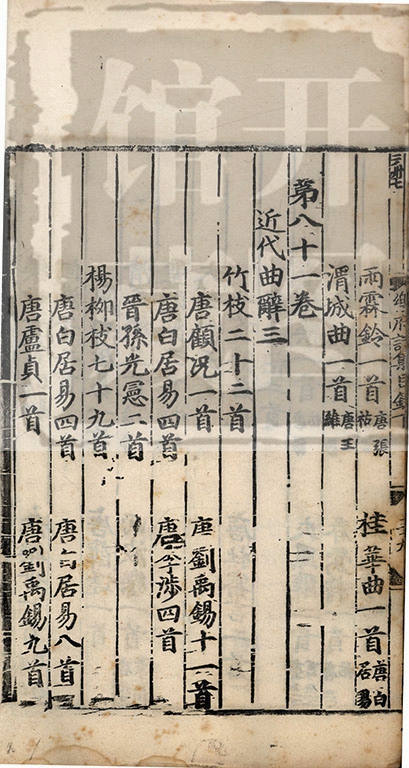 樂府詩集目錄
雨霖鈴一首 唐張祜 桂華曲一首 唐白居易
渭城曲一首 唐王維
第八十一卷
近代曲辭三
竹枝二十二首
唐顧況一首 唐劉禹錫十一首
唐白居易四首 唐李涉四首
晉孫光憲二首
楊柳枝七十九首
唐白居易四首 唐白居易八首
唐盧貞一首 唐劉禹錫九首